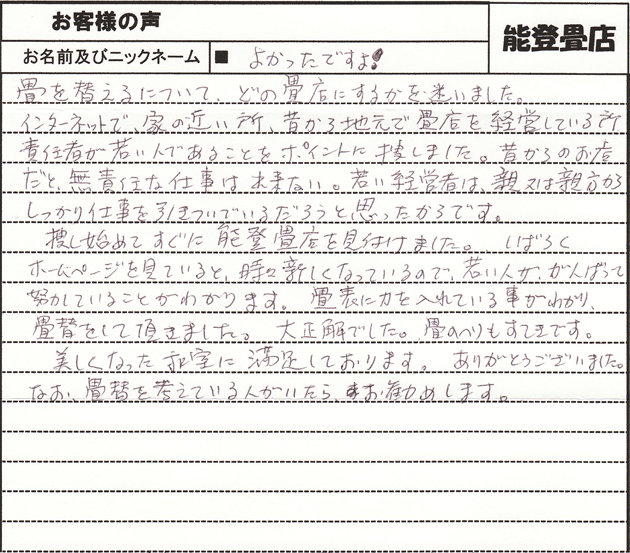 お客様の声
能登畳店
お名前及びニックネーム ■ よかったですよ!
畳を替えるについて、どの畳店にするかを迷いました。
インターネットで、家の近い所、昔から地元で畳店を経営している所
責任者が若い人であることをポイントに捜しました。昔からのお店
だと、無責任な仕事は出来ない。若い経営者は、親又は親方から
しっかり仕事を引きついでいるだろうと思ったからです。
捜し始めてすぐに能登畳店を見付けました。しばらく
ホームページを見ていると、時々新しくなっているので、若い人が、がんばって
努力していることがわかります。畳表に力を入れている事がわかり、
畳替をして頂きました。大正解でした。畳のへりもすてきです。
美しくなった和室に満足しております。ありがとうございました。
なお、畳替を考えている人がいたら、お勧めします。